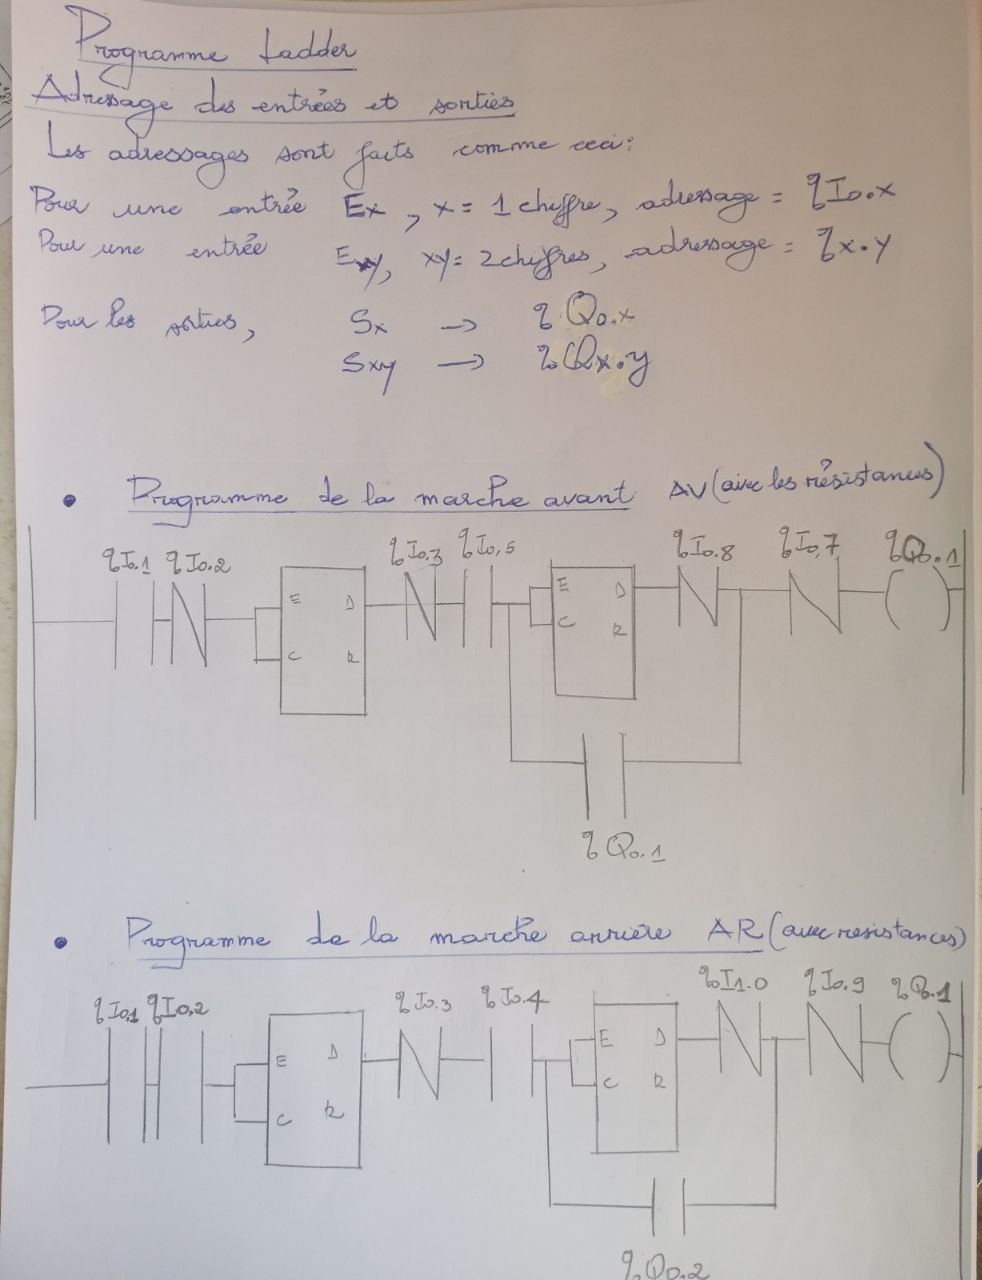 Programme Ladder
Adressage des entrées et sorties
Les adressages sont faits comme ceci:
Pour une entrée Ex, x = 1 chiffre, adressage = %I0.x
Pour une entrée Exy, xy = 2 chiffres, adressage = %x.y
Pour les sorties, Sx → %Q0.x
Sxy → %Qx.y
• Programme de la marche avant AV (avec les résistances)
%I0.1 %I0.2 %I0.3 %I0.5 %I0.8 %I0.7 %Q0.1
E D E D
C R C R
%Q0.1
• Programme de la marche arrière AR (avec resistances)
%I0.1 %I0.2 %I0.3 %I0.4 %I1.0 %I0.9 %Q0.1
E D E D
C R C R
%Q0.2